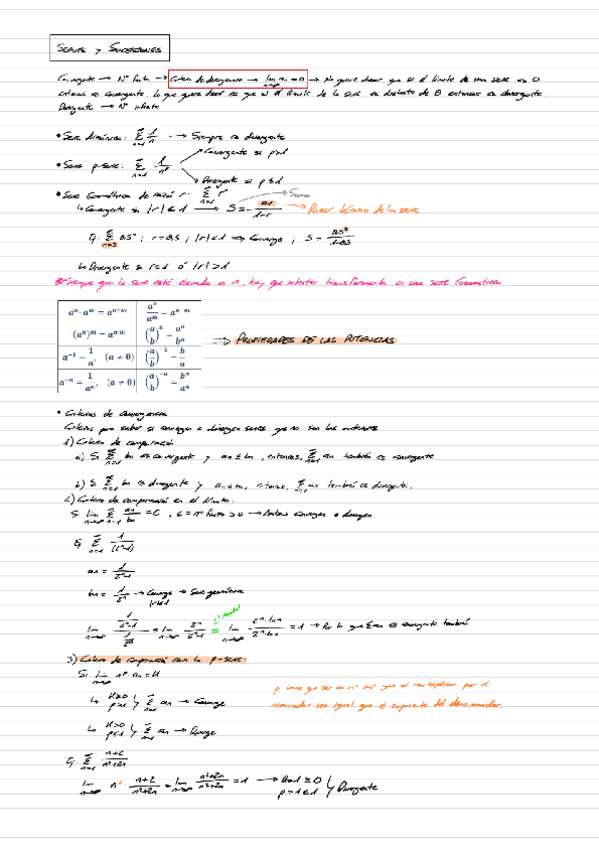 SERIES Y SUCESIONES
Convergente → Nº finito → Criterio de divergencia → lim an = 0 → No quiere decir que si el límite de una serie es 0
entonces es convergente. Lo que quiere decir es que si el límite de la serie es distinto de 0 entonces es divergente
Divergente → Nº infinito
• Serie armónica: Σ 1/n → Siempre es divergente
Convergente si p>1
• Serie p-serie: Σ 1/n^p
Divergente si p≤1
• Serie Geométrica de razón r: Σ r^n → Suma
↳ Convergente si |r|<1 → S = a1/1-r → Primer término de la serie
Ej: Σ 0.5^n ; r=0.5 ; |r|<1 → Converge ; S =
↳ Divergente si r=1 ó |r|>1
Siempre que la serie esté elevada a n, hay que intentar transformarla en una serie Geométrica
a^n · a^m = a^{n+m} a^n/a^m = a^{n-m}
(a^n)^m = a^{n·m} (a/b)^n = a^n/b^n
a^{-1} = 1/a, (a ≠ 0) (a/b)^{-1} = b/a
a^{-n} = 1/a^n, (a ≠ 0) (a/b)^{-n} = b^n/a^n
→ PROPIEDADES DE LAS POTENCIAS
• Criterios de convergencia
Criterios para saber si converge o diverge series que no son las anteriores
1) Criterio de comparación
a) Si Σ bn es convergente y an ≤ bn, entonces, Σ an también es convergente
b) Si Σ bn es divergente y entonces, Σ an también es divergente.
2) Criterio de comparación en el límite.
Si lim an/bn = C, C = nº finito > 0 → Ambas convergen o divergen
Ej Σ 1/(2^n-1)
an = 1/2^n-1
bn = 1/2^n → Converge → Serie geométrica
|r|<1
L'Hopital
lim = lim 2^n/2^n-1 = lim 2^n·ln2/2^n·ln2 = 1 → Por lo que Σ an es convergente también
3) Criterio de comparación con la p-serie:
Si lim n^p · an = K
↳ Σ an → Converge
↳ Σ an → Diverge
p tiene que ser un nº tal que al multiplicar por el
numerador sea igual que el exponente del denominador.
Ej: Σ n+2/n²+2n
lim n · n+2/n²+2n = lim n²+2n/n²+2n = 1 →
p=1≤1 Divergente